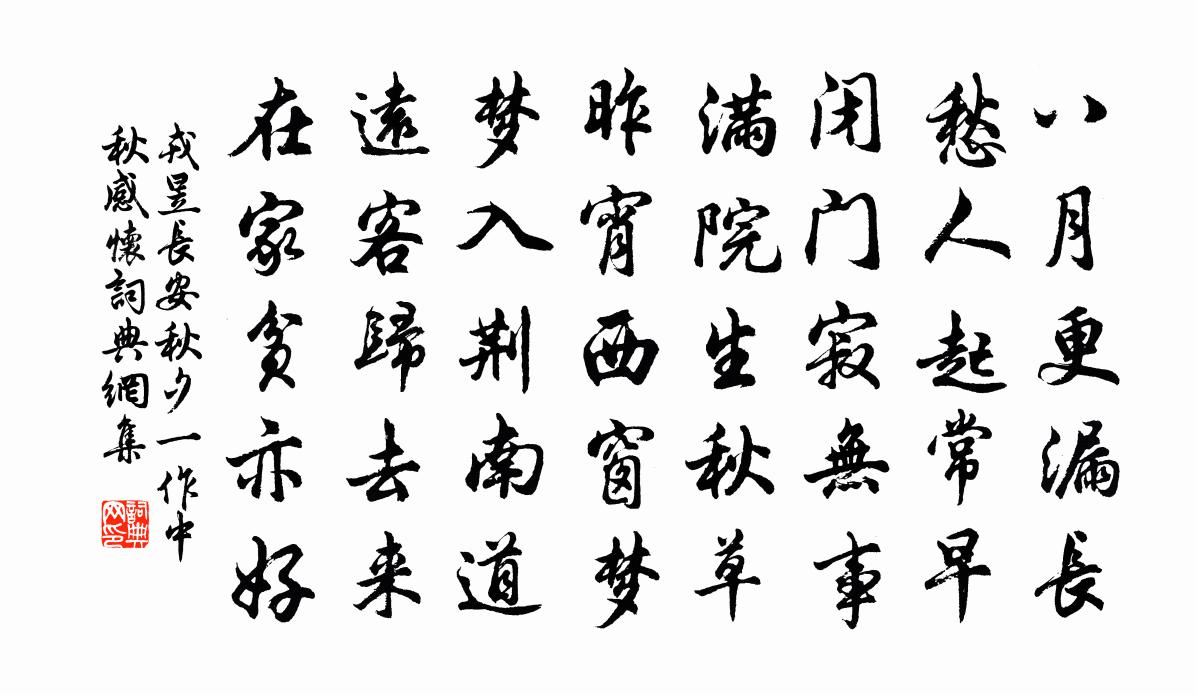 八月更漏長
愁人起常早
闭门寂無事
满院生秋草
昨宵西窗梦
梦入荆南道
遠客歸去来
在家贫亦好
戎昱長安秋夕一作中
秋感懷詞典網集
詞典网印